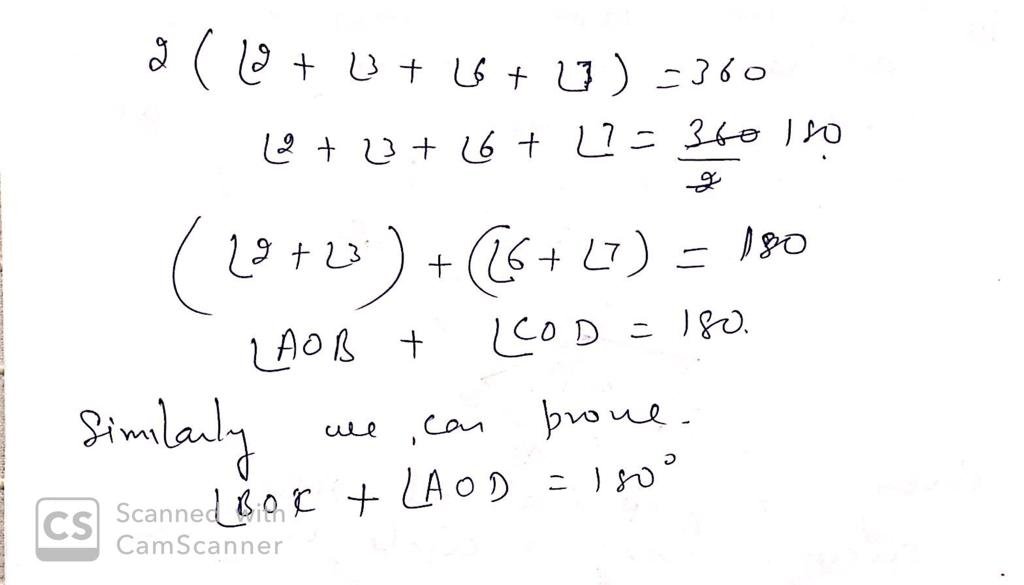 2 ( ∠2 + ∠3 + ∠6 + ∠7 ) = 360
∠2 + ∠3 + ∠6 + ∠7 = 360/2 180
( ∠2 + ∠3 ) + ( ∠6 + ∠7 ) = 180
∠AOB + ∠COD = 180.
Similarly we can prove.
∠BOC + ∠AOD = 180°
CS Scanned with
CamScanner